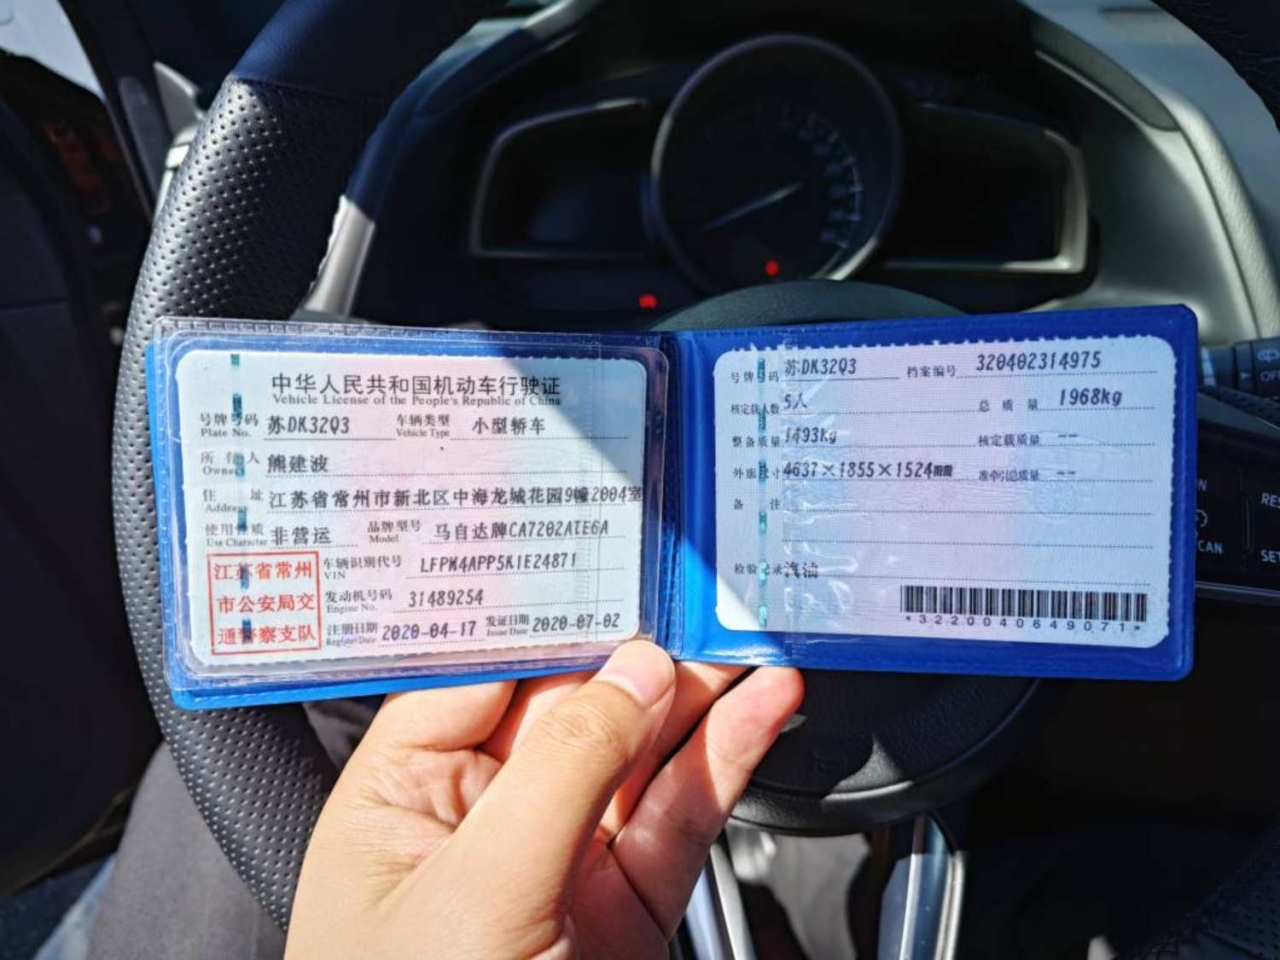 中华人民共和国机动车行驶证
Vehicle License of the People's Republic of China
号牌号码 苏DK32Q3 车辆类型 小型轿车
Plate No. Vehicle Type
所有人 熊建波
Owner
住 址 江苏省常州市新北区中海龙城花园9幢2004室
Address
使用性质 非营运 品牌型号 马自达牌CA7202ATE6A
Use Character Model
江苏省常州
市公安局交
通警察支队
车辆识别代号 LFPM4APP5K1E24871
VIN
发动机号码 31489254
Engine No.
注册日期 2020-04-17 发证日期 2020-07-02
Register Date Issue Date
号牌号码 苏DK32Q3 档案编号 320402314975
核定载人数 5人 总 质 量 1968kg
整备质量 1493kg 核定载质量 --
外廓尺寸 4637×1855×1524mm 准牵引总质量 --
备 注
检验记录 汽油
*3220040649071*
OFF
CAN